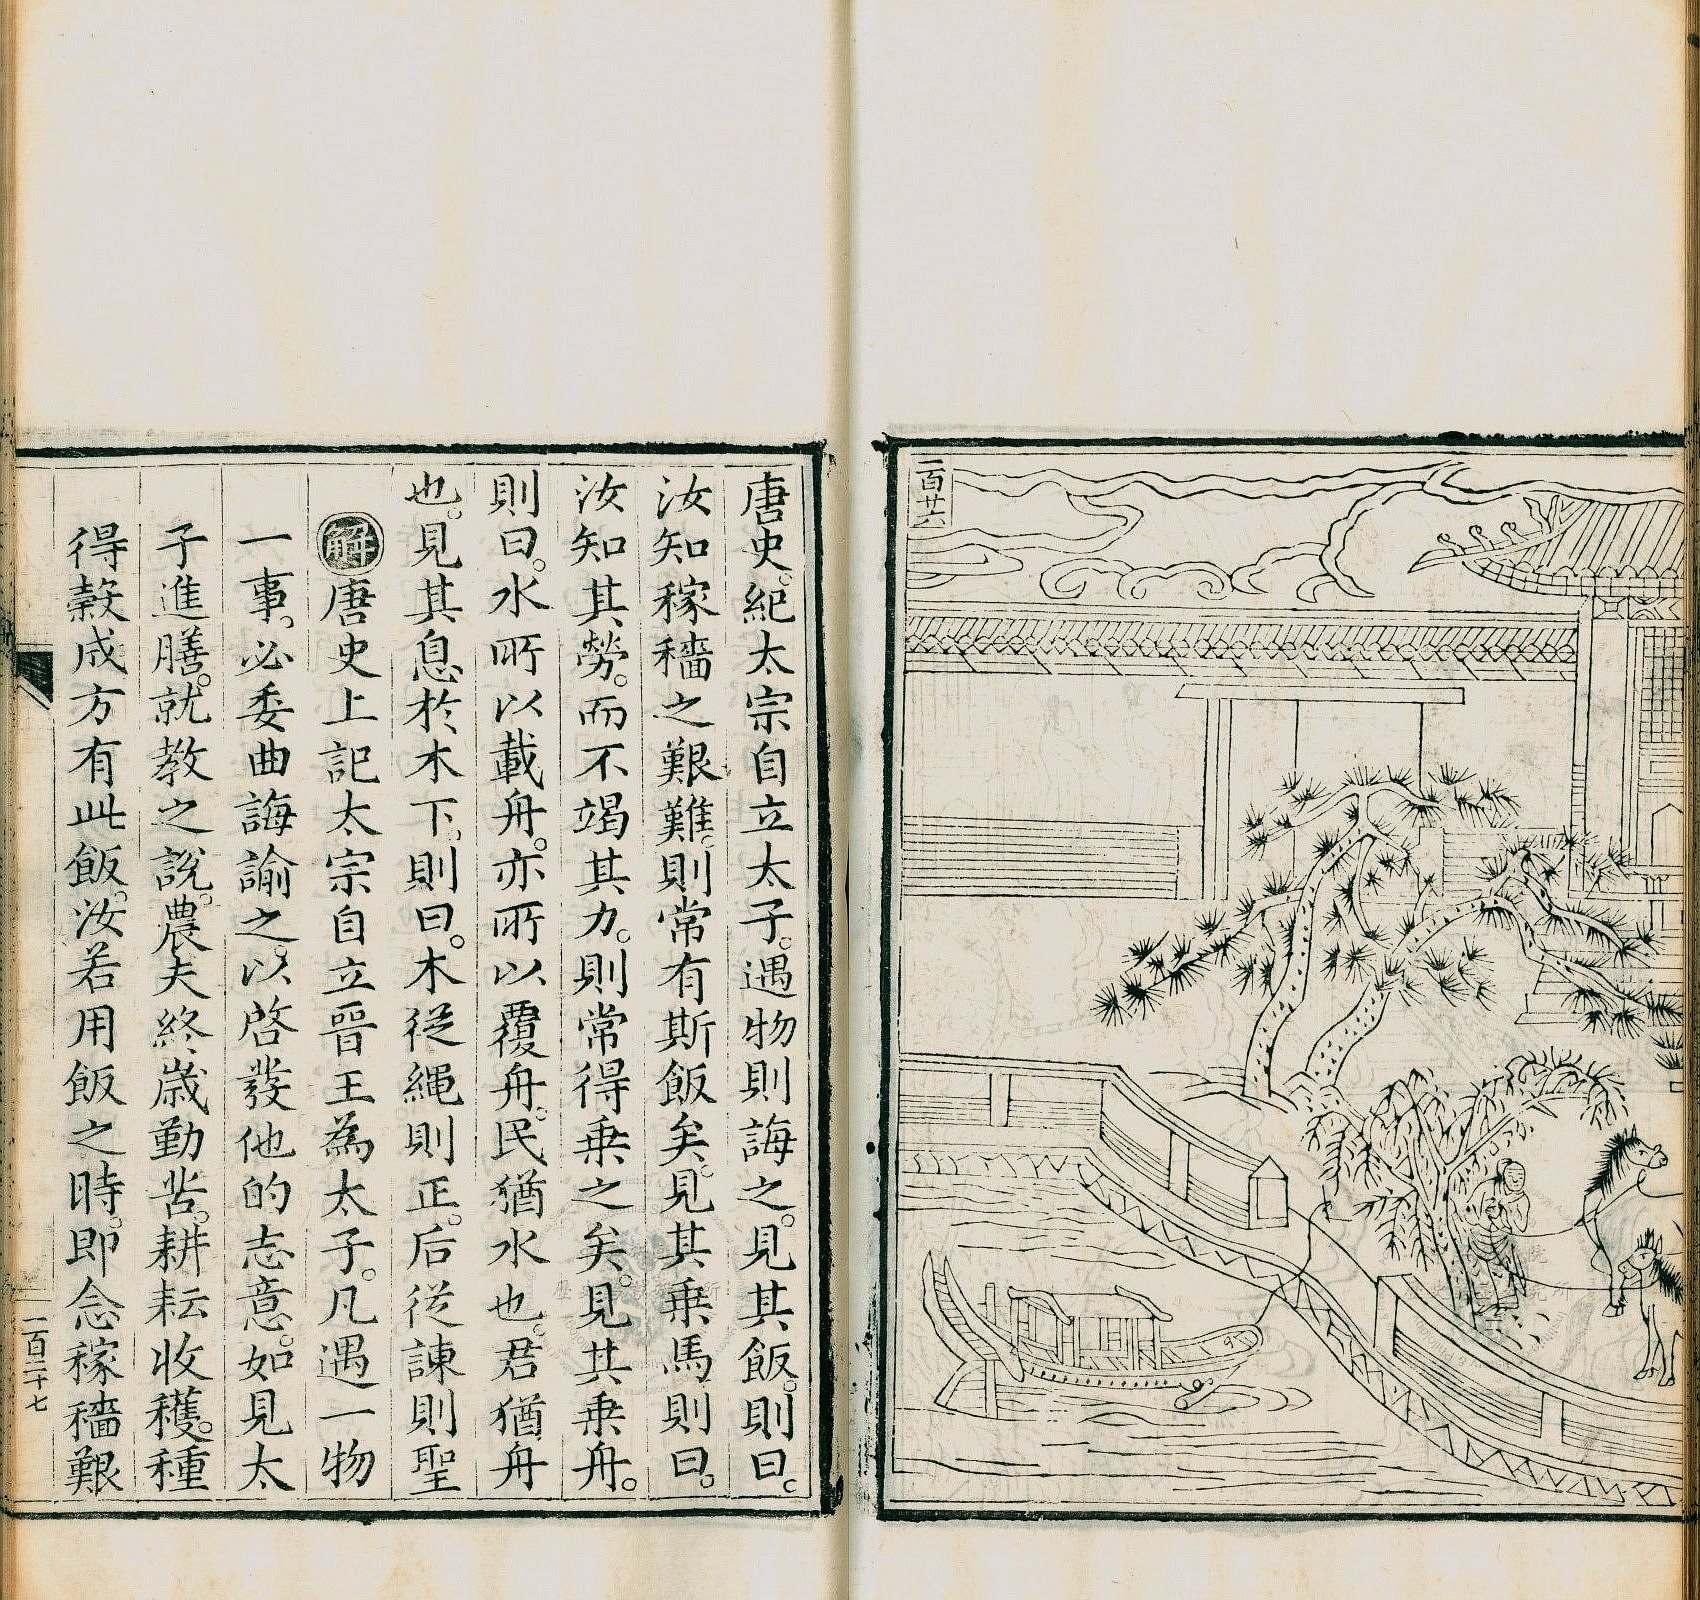 一百廿六
唐史。紀太宗自立太子。遇物則誨之。見其飯。則曰。
汝知稼穡之艱難。則常有斯飯矣。見其乗馬則曰。
汝知其勞。而不竭其力。則常得乗之矣。見其乗舟。
則曰。水所以載舟。亦所以覆舟。民猶水也。君猶舟
也。見其息於木下。則曰。木從繩則正。后從諫則聖
解 唐史上記太宗自立晉王為太子。凡遇一物
一事。必委曲誨諭之。以啓發他的志意。如見太
子進膳。就教之說。農夫終歲勤苦。耕耘收穫。種
得穀成方有此飯。汝若用飯之時。即念稼穡艱
一百二十七